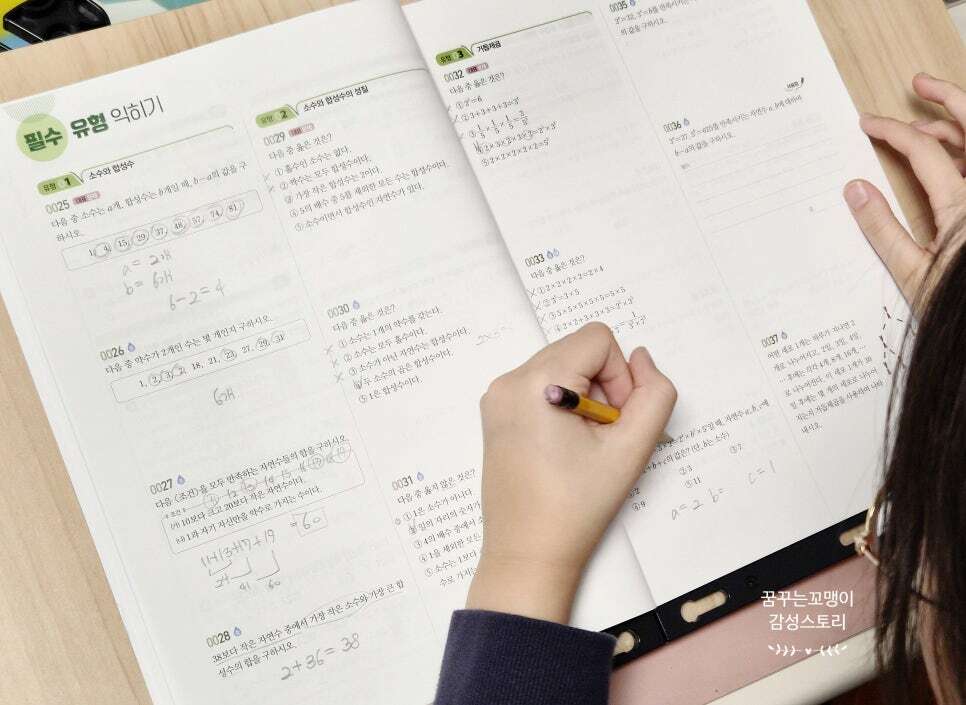 필수 유형 익히기
유형 1 소수와 합성수
0025 대표
다음 중 소수는 a개, 합성수는 b개일 때, b-a의 값을 구
하시오.
1, 4, 15, 29, 37, 48, 57, 74, 81
a = 2개
b = 6개
6-2=4
0026
다음 중 약수가 2개인 수는 몇 개인지 구하시오.
1, 2, 3, 7, 18, 21, 23, 27, 29, 31
6개
0027
다음 <조건>을 모두 만족하는 자연수들의 합을 구하시오.
(가) 10보다 크고 20보다 작은 자연수이다.
(나) 1과 자기 자신만을 약수로 가지는 수이다.
11+13+17+19
=60
24
41
60
0028
38보다 작은 자연수 중에서 가장 작은 소수와 가장 큰 합
성수의 합을 구하시오.
2+36=38
유형 2 소수와 합성수의 성질
0029 대표
다음 중 옳은 것은?
① 홀수인 소수는 없다.
② 짝수는 모두 합성수이다.
③ 가장 작은 합성수는 2이다.
④ 5의 배수 중 5를 제외한 모든 수는 합성수이다.
⑤ 소수이면서 합성수인 자연수가 있다.
0030
다음 중 옳은 것은?
① 소수는 1개의 약수를 갖는다.
② 소수는 모두 홀수이다.
③ 소수가 아닌 자연수는 합성수이다.
④ 두 소수의 곱은 합성수이다.
⑤ 1은 합성수이다.
0031
다음 중 옳지 않은 것은?
① 1은 소수가 아니다.
② 일의 자리의 숫자가
③ 4의 배수 중에서 소
④ 1을 제외한 모든
⑤ 소수는 1보다
로 가지는
유형 3 거듭제곱
0032 대표
다음 중 옳은 것은?
① 2³=6
② 3+3+3+3=3⁴
⑤ 2×2×2×2×2=5²
0033
다음 중 옳은 것은?
① 2×2×2×2=2×4
③ 5×5×5×5×5=5×5
④ 2×2+3×3×3=2²×3³
일 때, 자연수 a, b, c에
a+b+c의 값은? (단, b는 소수)
③ 7
④ 9
⑤ 11
a=2 b= c=1
0035
의 값을 구하시오.
서술형
0036
b-a의 값을 구하시오.
0037
어떤 세포 1개는 하루가 지나면 2
개로 나누어지고, 2일, 3일, 4일,
… 후에는 각각 4개, 8개, 16개, …
로 나누어진다. 이 세포 1개가 10
일 후에는 몇 개의 세포로 나누어
지는지 거듭제곱을 사용하여 나타
내시오.
꿈꾸는꼬맹이
감성스토리